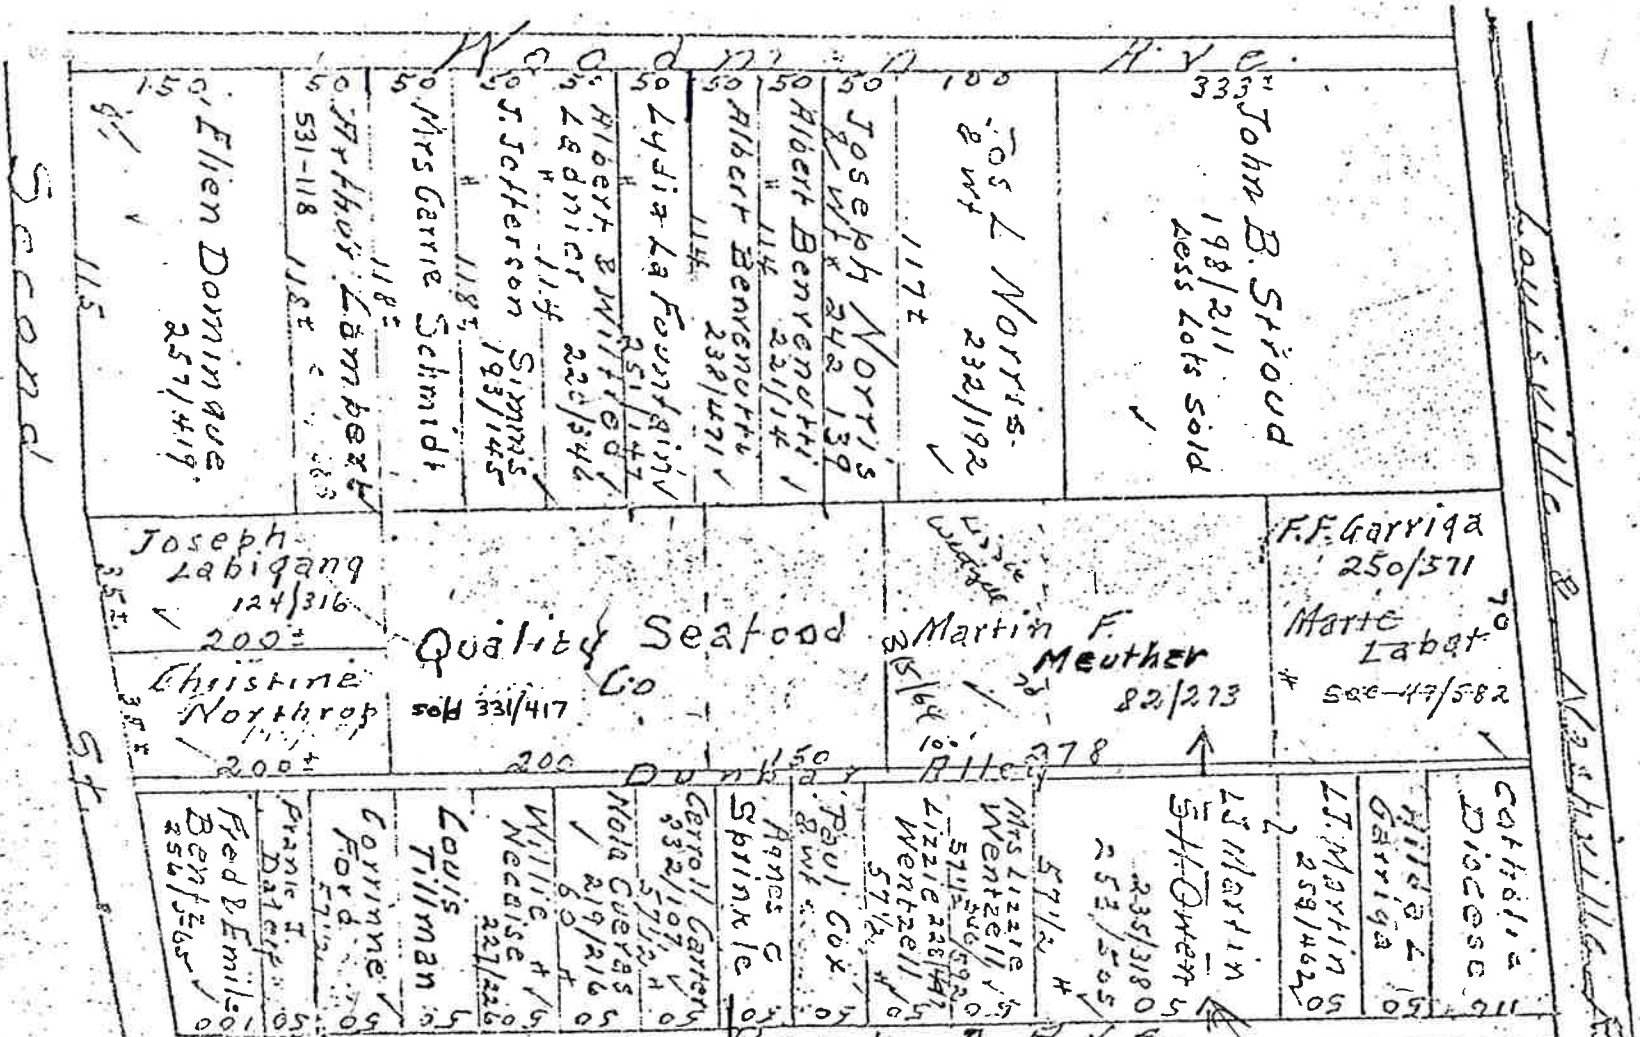 Woodman Ave.
150
50
50
50
50
50
50
50
50
100
333±
Second
St.
Louisville & Nashville R
Ellen Dominque
257/419
115
Arthur Lambert
531-118
118±
Mrs Carrie Schmidt
118±
J. Jefferson Simms
118± 193/145
Albert & Wilfred
Ladnier 222/346
114
Lydia LaFountain
251/147
Albert Benvenutti
114 238/471
Albert Benvenutti
114 221/14
Joseph Norris
& wf 242 139
Jos L Norris
& wf 232/192
117±
John B. Stroud
198/211
Less Lots sold
Joseph
Labigang
124/316
200±
35±
Christine
Northrop
200±
35±
Quality Seafood
Co
sold 331/417
200
150
Lizzie
Martin F.
Meuther
82/273
315/64
100
278
F.F. Garriga
250/571
Marie
Labat
70
sec-47/582
Dunbar Alley
Fred & Emile
Bentz
100
Frank T.
50
Corrinne
Ford
57½
50
Louis
Tillman
50
Willie
Necaise
227/226
50
Nola Cuevas
219/216
60
50
Carroll Carter
232/107
57½
50
Agnes C
Sprinkle
50
Paul Cox
& wf
50
Lizzie 228/147
Wentzell
57½
50
Mrs Lizzie
Wentzell
57½ 246/592
50
57½
LJ Martin
S H Owen
235/3180
253/505
LJ Martin
259/462
50
Hilda L
Garriga
50
Catholic
Diocese
110